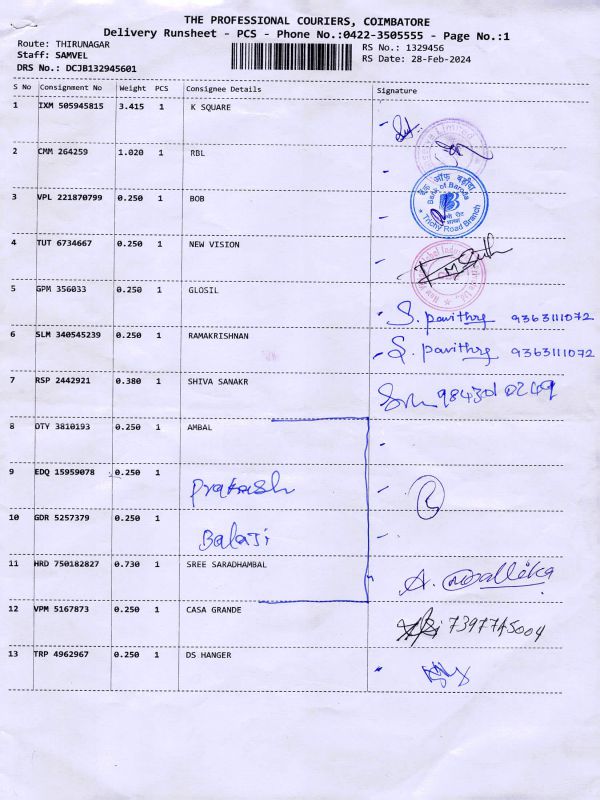 THE PROFESSIONAL COURIERS, COIMBATORE
Delivery Runsheet - PCS - Phone No.:0422-3505555 - Page No.:1
Route: THIRUNAGAR
RS No.: 1329456
Staff: SAMVEL
RS Date: 28-Feb-2024
DRS No.: DCJB132945601
S No Consignment No Weight PCS Consignee Details Signature
1 IXM 505945815 3.415 1 K SQUARE
2 CMM 264259 1.020 1 RBL
बैंक ऑफ़ बड़ौदा
Bank of Baroda
Trichy Road Branch
3 VPL 221870799 0.250 1 BOB
4 TUT 6734667 0.250 1 NEW VISION
5 GPM 356033 0.250 1 GLOSIL
S. pavithra 9363111072
6 SLM 340545239 0.250 1 RAMAKRISHNAN
S. pavithra 9363111072
7 RSP 2442921 0.380 1 SHIVA SANAKR
8 DTY 3810193 0.250 1 AMBAL
9 EDQ 15959078 0.250 1 Prakash
10 GDR 5257379 0.250 1 Balaji
11 HRD 750182827 0.730 1 SREE SARADHAMBAL
A. mallika
12 VPM 5167873 0.250 1 CASA GRANDE
13 TRP 4962967 0.250 1 DS HANGER